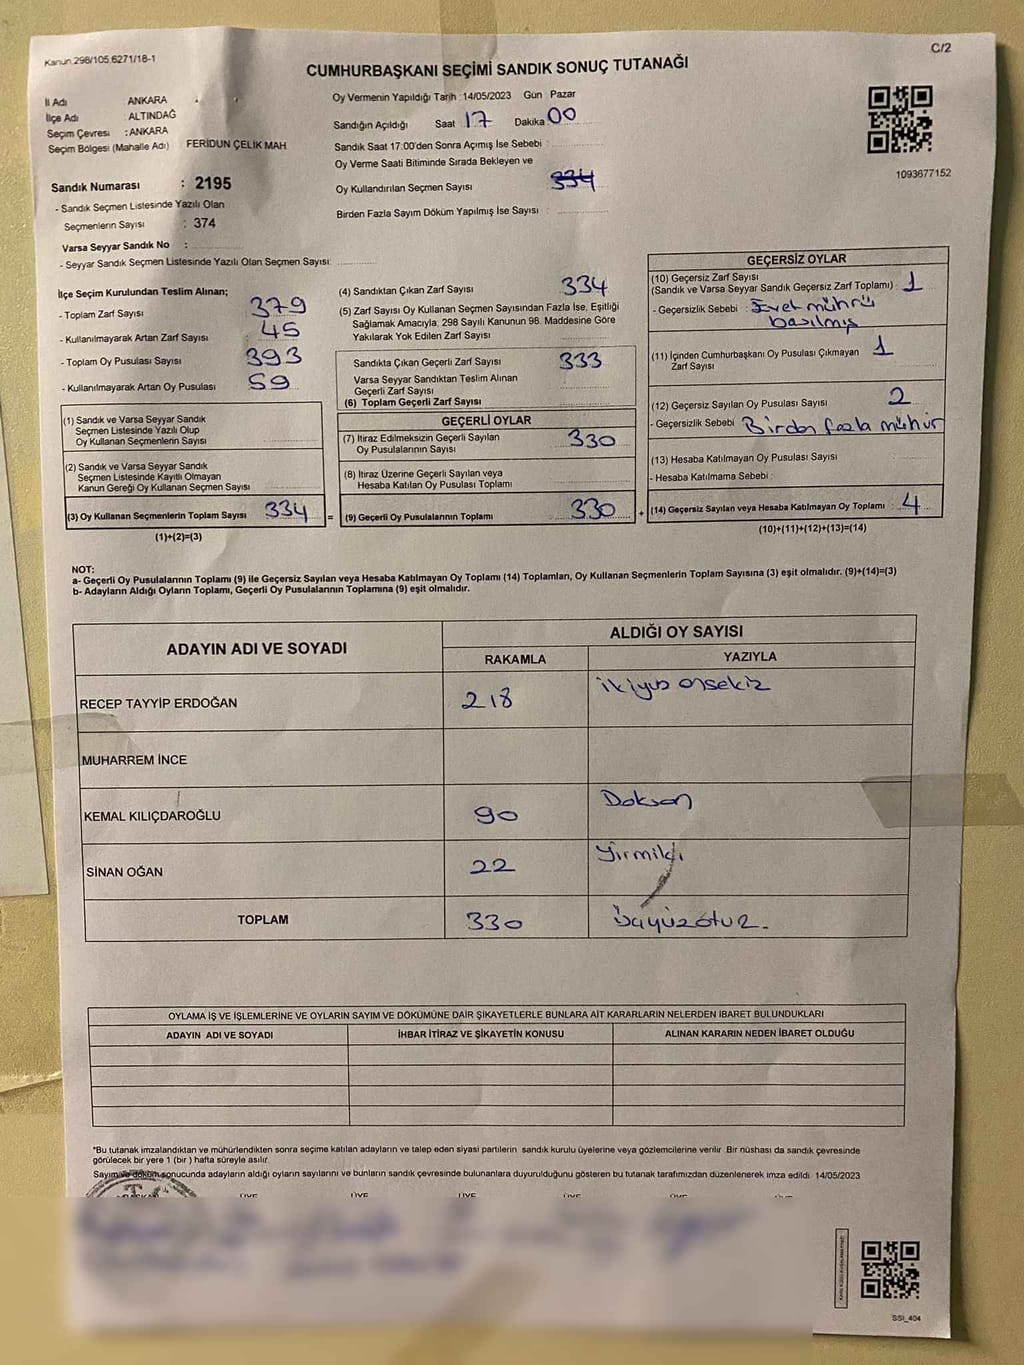 Kanun.298/105.6271/18-1
C/2
CUMHURBAŞKANI SEÇİMİ SANDIK SONUÇ TUTANAĞI
İl Adı ANKARA
İlçe Adı ALTINDAĞ
Seçim Çevresi : ANKARA
Seçim Bölgesi (Mahalle Adı) FERİDUN ÇELİK MAH
Sandık Numarası : 2195
- Sandık Seçmen Listesinde Yazılı Olan
Seçmenlerin Sayısı : 374
Varsa Seyyar Sandık No :
- Seyyar Sandık Seçmen Listesinde Yazılı Olan Seçmen Sayısı:
Oy Vermenin Yapıldığı Tarih :14/05/2023 Gün : Pazar
Sandığın Açıldığı Saat 17 Dakika 00
Sandık Saat 17:00'den Sonra Açımış İse Sebebi :
Oy Verme Saati Bitiminde Sırada Bekleyen ve
Oy Kullandırılan Seçmen Sayısı : 334
Birden Fazla Sayım Döküm Yapılmış İse Sayısı :
1093677152
İlçe Seçim Kurulundan Teslim Alınan;
- Toplam Zarf Sayısı : 379
- Kullanılmayarak Artan Zarf Sayısı : 45
- Toplam Oy Pusulası Sayısı : 393
- Kullanılmayarak Artan Oy Pusulası : 59
(1) Sandık ve Varsa Seyyar Sandık
Seçmen Listesinde Yazılı Olup
Oy Kullanan Seçmenlerin Sayısı
(2) Sandık ve Varsa Seyyar Sandık
Seçmen Listesinde Kayıtlı Olmayan
Kanun Gereği Oy Kullanan Seçmen Sayısı
(3) Oy Kullanan Seçmenlerin Toplam Sayısı 334
(1)+(2)=(3)
=
(4) Sandıktan Çıkan Zarf Sayısı 334
(5) Zarf Sayısı Oy Kullanan Seçmen Sayısından Fazla İse, Eşitliği
Sağlamak Amacıyla, 298 Sayılı Kanunun 98. Maddesine Göre
Yakılarak Yok Edilen Zarf Sayısı
Sandıkta Çıkan Geçerli Zarf Sayısı 333
Varsa Seyyar Sandıktan Teslim Alınan
Geçerli Zarf Sayısı
(6) Toplam Geçerli Zarf Sayısı
GEÇERLİ OYLAR
(7) İtiraz Edilmeksizin Geçerli Sayılan
Oy Pusulalarının Sayısı 330
(8) İtiraz Üzerine Geçerli Sayılan veya
Hesaba Katılan Oy Pusulası Toplamı
(9) Geçerli Oy Pusulalarının Toplamı 330
+
GEÇERSİZ OYLAR
(10) Geçersiz Zarf Sayısı
(Sandık ve Varsa Seyyar Sandık Geçersiz Zarf Toplamı) : 1
- Geçersizlik Sebebi : Evet mührü
basılmış
(11) İçinden Cumhurbaşkanı Oy Pusulası Çıkmayan
Zarf Sayısı 1
(12) Geçersiz Sayılan Oy Pusulası Sayısı 2
- Geçersizlik Sebebi : Birden fazla mühür
(13) Hesaba Katılmayan Oy Pusulası Sayısı
- Hesaba Katılmama Sebebi :
(14) Geçersiz Sayılan veya Hesaba Katılmayan Oy Toplamı : 4
(10)+(11)+(12)+(13)=(14)
NOT:
a- Geçerli Oy Pusulalarının Toplamı (9) ile Geçersiz Sayılan veya Hesaba Katılmayan Oy Toplamı (14) Toplamları, Oy Kullanan Seçmenlerin Toplam Sayısına (3) eşit olmalıdır. (9)+(14)=(3)
b- Adayların Aldığı Oyların Toplamı, Geçerli Oy Pusulalarının Toplamına (9) eşit olmalıdır.
ADAYIN ADI VE SOYADI ALDIĞI OY SAYISI
RAKAMLA YAZIYLA
RECEP TAYYİP ERDOĞAN 218 ikiyüz onsekiz
MUHARREM İNCE
KEMAL KILIÇDAROĞLU 90 Doksan
SİNAN OĞAN 22 Yirmiiki
TOPLAM 330 üçyüzotuz.
OYLAMA İŞ VE İŞLEMLERİNE VE OYLARIN SAYIM VE DÖKÜMÜNE DAİR ŞİKAYETLERLE BUNLARA AİT KARARLARIN NELERDEN İBARET BULUNDUKLARI
ADAYIN ADI VE SOYADI İHBAR İTİRAZ VE ŞİKAYETİN KONUSU ALINAN KARARIN NEDEN İBARET OLDUĞU
*Bu tutanak imzalandıktan ve mühürlendikten sonra seçime katılan adayların ve talep eden siyasi partilerin sandık kurulu üyelerine veya gözlemcilerine verilir. Bir nüshası da sandık çevresinde
görülecek bir yere 1 (bir ) hafta süreyle asılır.
Sayım ve döküm sonucunda adayların aldığı oyların sayılarını ve bunların sandık çevresinde bulunanlara duyurulduğunu gösteren bu tutanak tarafımızdan düzenlenerek imza edildi. 14/05/2023
ÜYE ÜYE ÜYE ÜYE ÜYE ÜYE
SSI_404